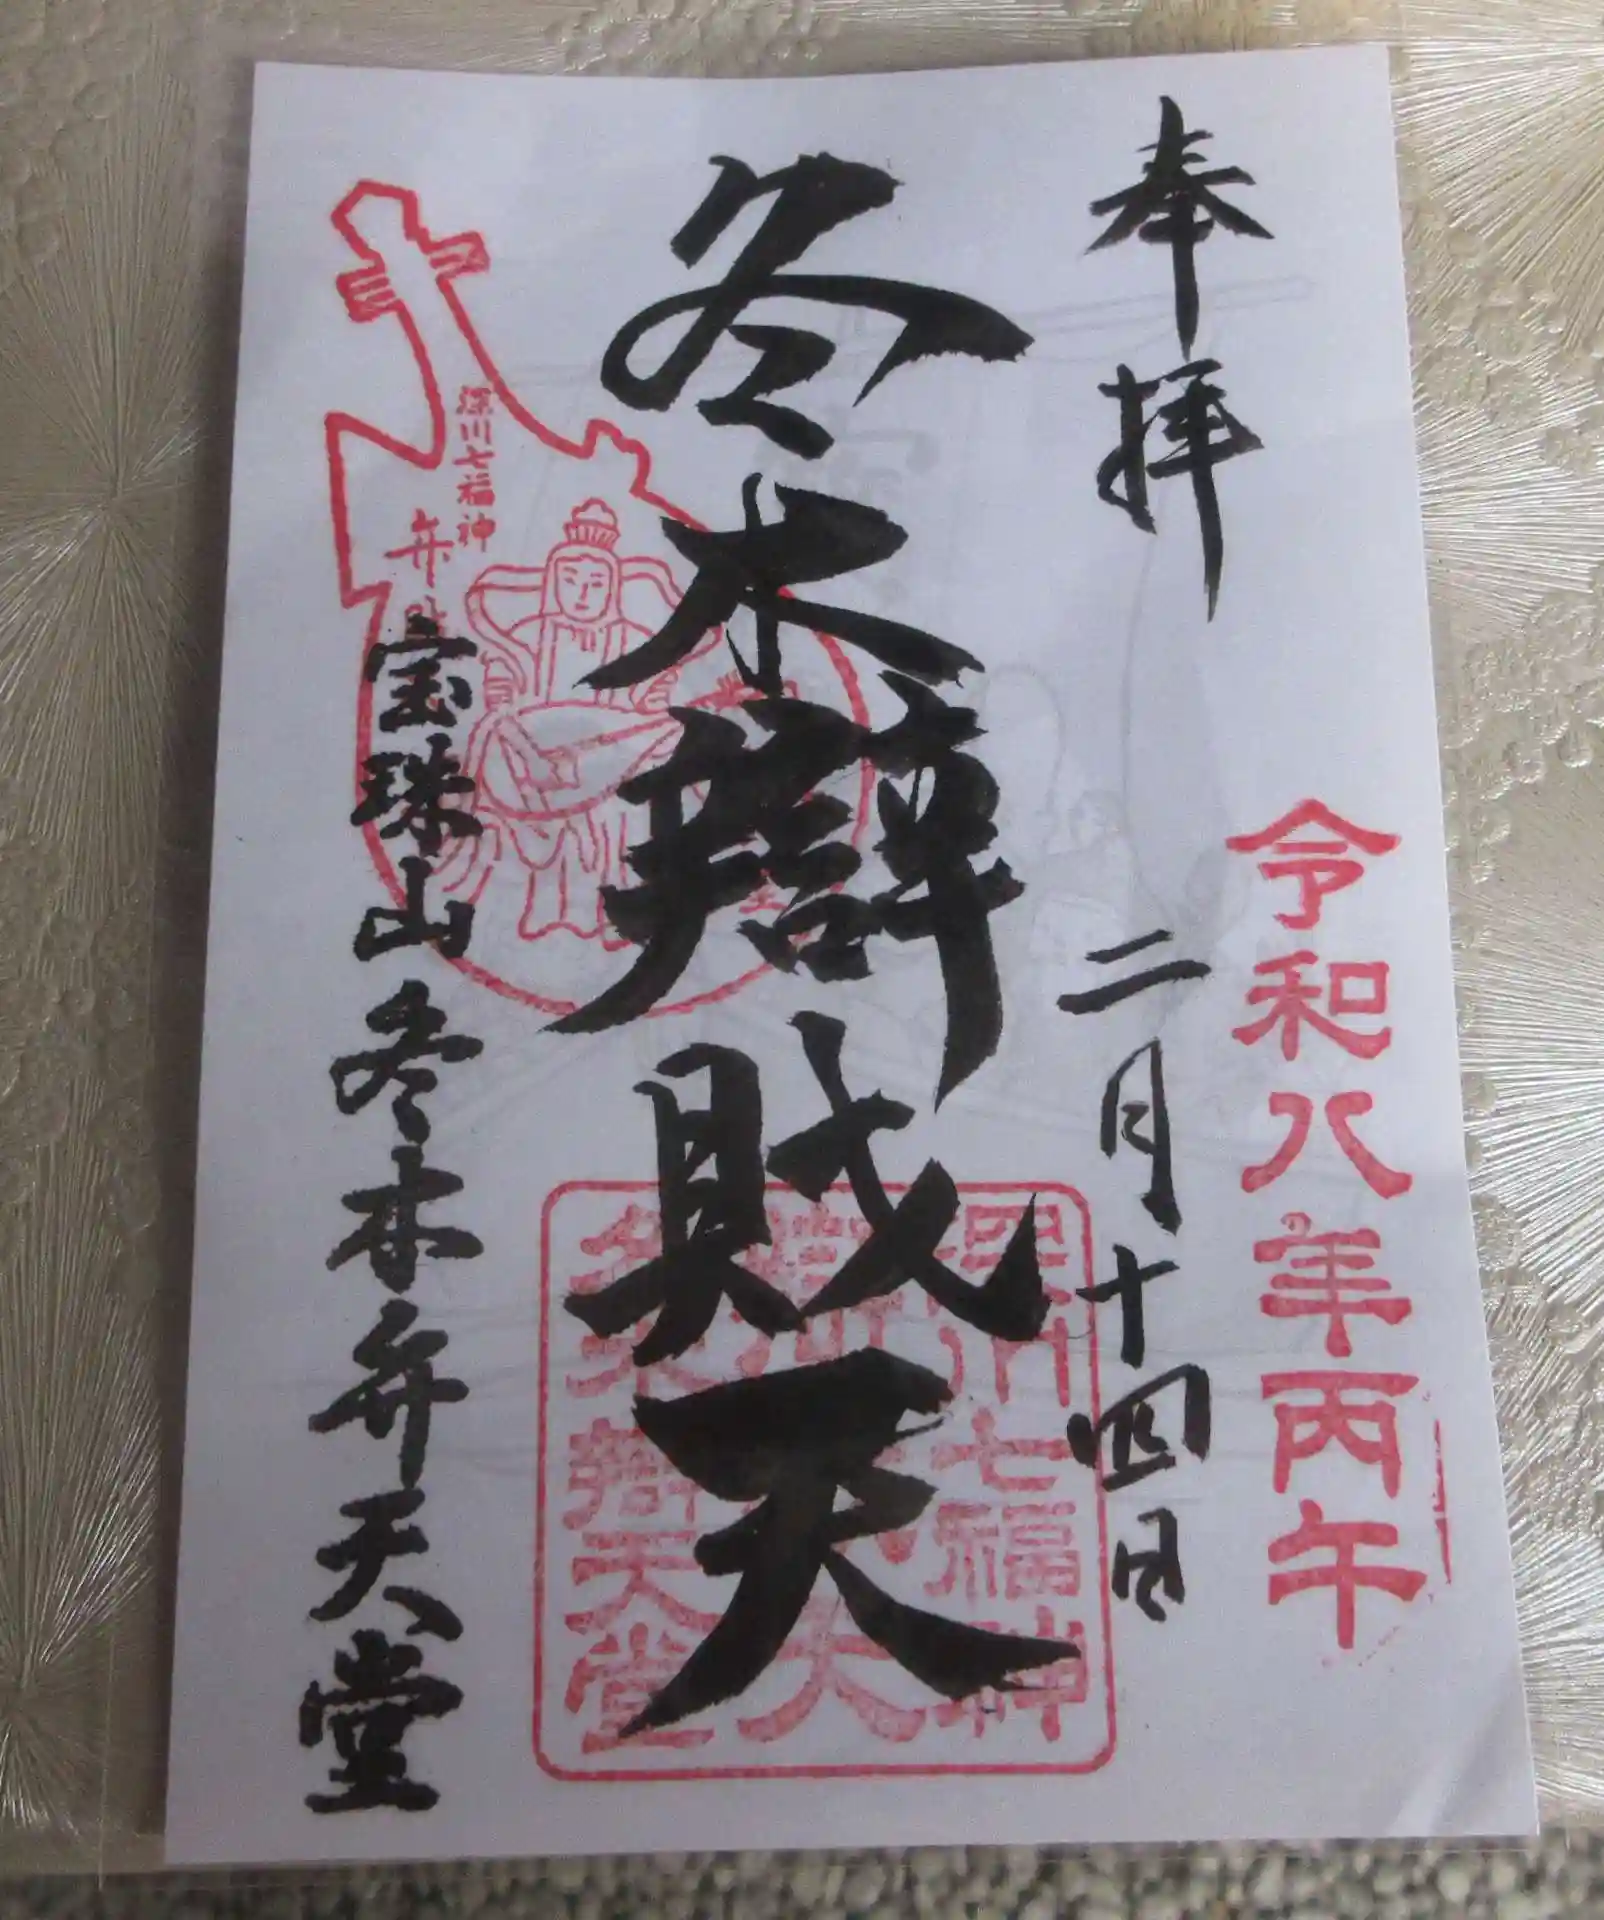 奉拝
令和八年丙午
二月十四日
冬木辯財天
深川七福神
弁
宝珠山冬木弁天堂
深川七福神
冬木辯天堂